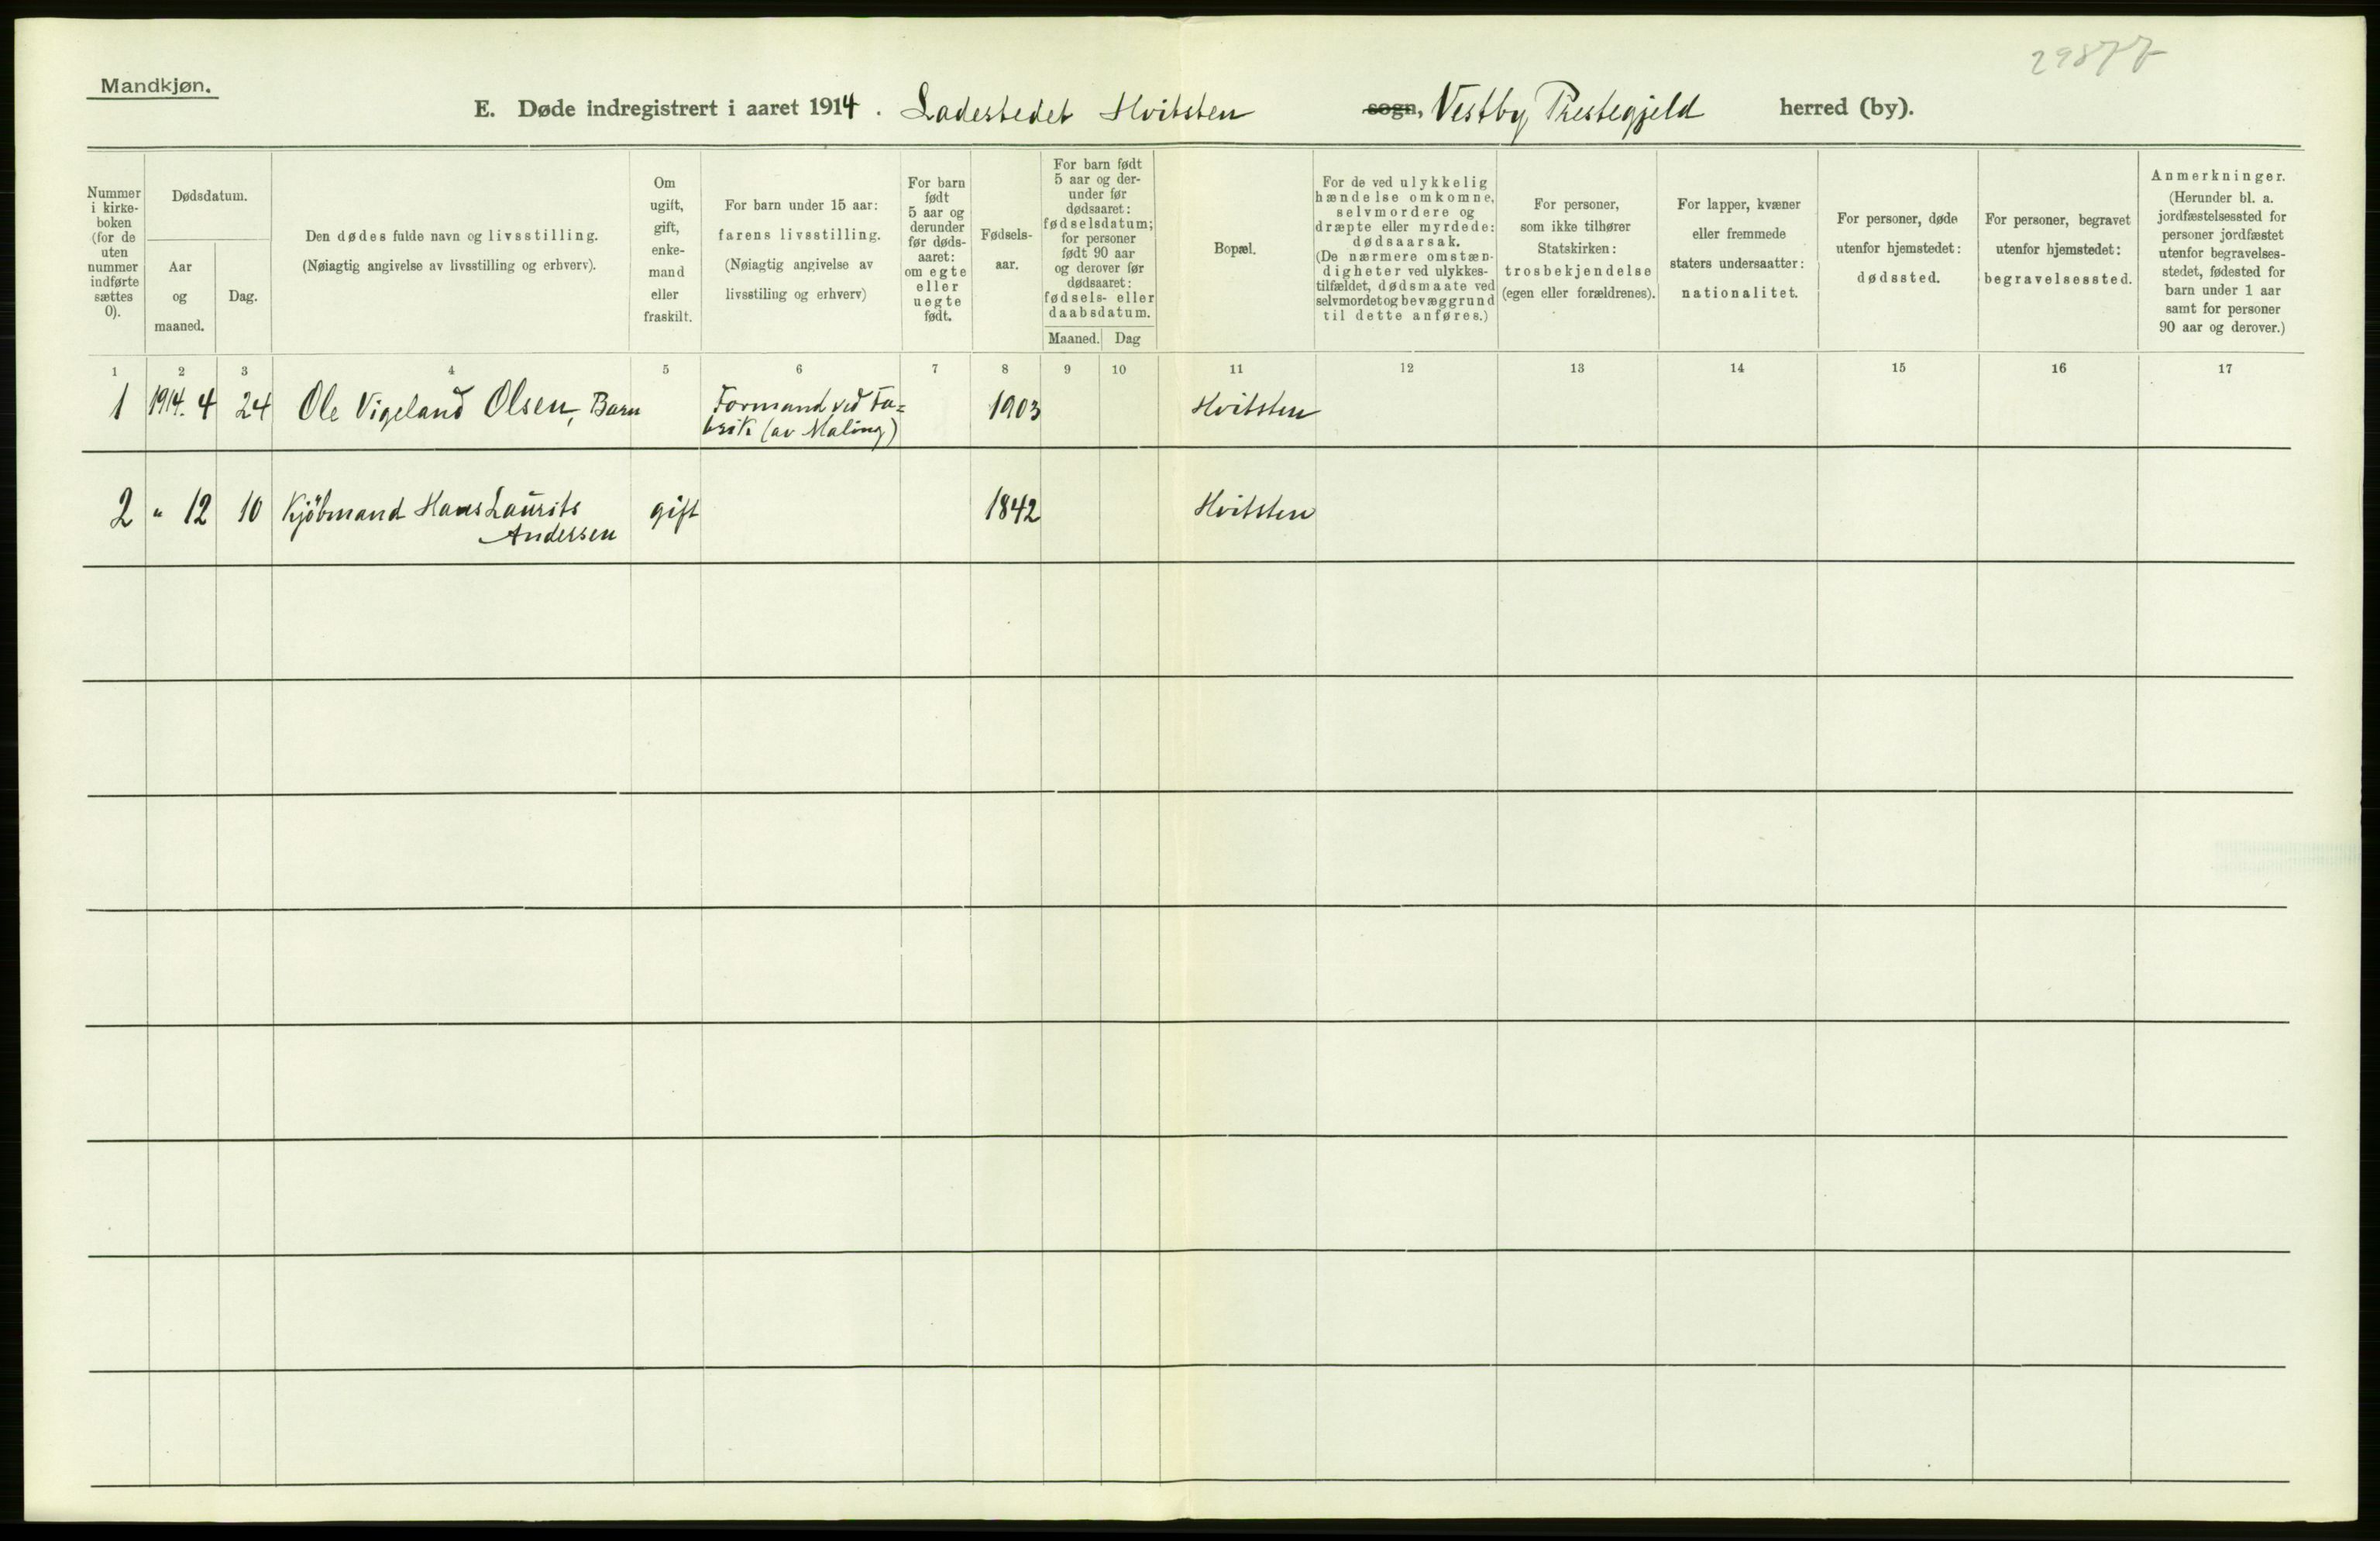 29877
Mandkjøn.
E. Døde indregistrert i aaret 1914. Ladestedet Hvitsten sogn, Vestby Prestegjeld herred (by).
Nummer
i kirke-
boken
(for de
uten
nummer
indførte
sættes
0).
Dødsdatum.
Aar
og
maaned.
Dag.
Den dødes fulde navn og livsstilling.
(Nøiagtig angivelse av livsstilling og erhverv).
Om
ugift,
gift,
enke-
mand
eller
fraskilt.
For barn under 15 aar:
farens livsstilling.
(Nøiagtig angivelse av
livsstiling og erhverv)
For barn
født
5 aar og
derunder
før døds-
aaret:
om egte
eller
uegte
født.
Fødsels-
aar.
For barn født
5 aar og der-
under før
dødsaaret:
fødselsdatum;
for personer
født 90 aar
og derover før
dødsaaret:
fødsels- eller
daabsdatum.
Maaned. Dag
Bopæl.
For de ved ulykkelig
hændelse omkomne,
selvmordere og
dræpte eller myrdede:
dødsaarsak.
(De nærmere omstæn-
digheter ved ulykkes-
tilfældet, dødsmaate ved
selvmordet og bevæggrund
til dette anføres.)
For personer,
som ikke tilhører
Statskirken:
trosbekjendelse
(egen eller forældrenes).
For lapper, kvæner
eller fremmede
staters undersaatter:
nationalitet.
For personer, døde
utenfor hjemstedet:
dødssted.
For personer, begravet
utenfor hjemstedet:
begravelsessted.
Anmerkninger.
(Herunder bl. a.
jordfæstelsessted for
personer jordfæstet
utenfor begravelses-
stedet, fødested for
barn under 1 aar
samt for personer
90 aar og derover.)
1 2 3 4 5 6 7 8 9 10 11 12 13 14 15 16 17
1 1914. 4 24 Ole Vigeland Olsen, Barn Formand ved Fa= 1903 Hvitsten
brik (av Maling)
2 " 12 10 Kjöbmand Hans Laurits gift 1842 Hvitsten
Andersen